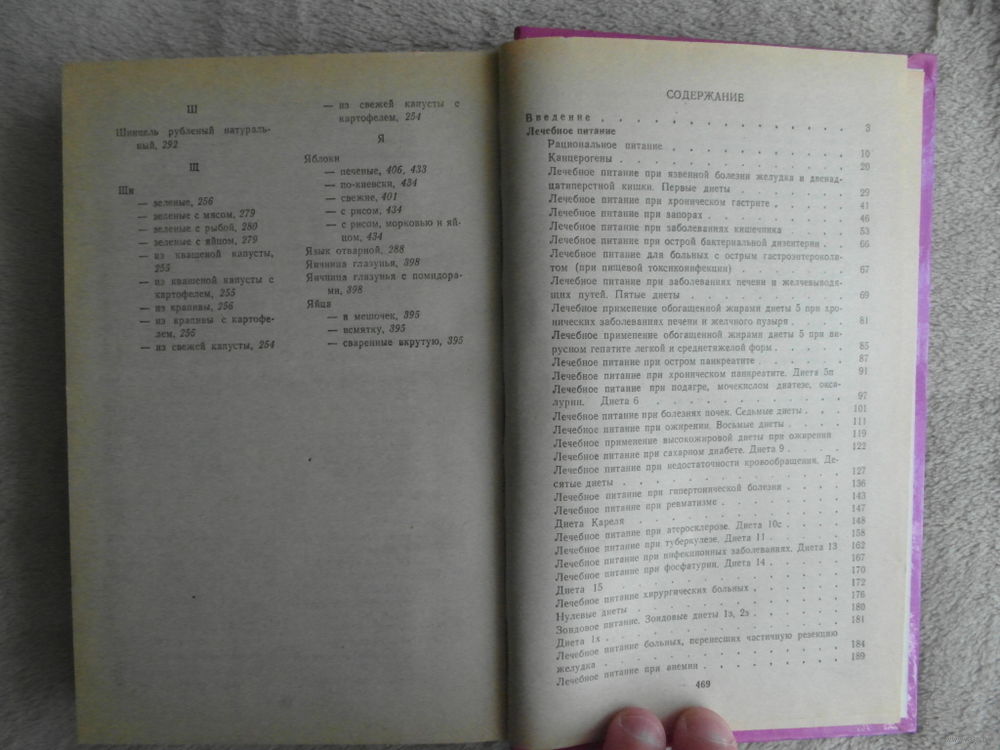 Ш
Шницель рубленый натураль-
ный, 292
Щ
Щи
— зеленые, 256
— зеленые с мясом, 279
— зеленые с рыбой, 280
— зеленые с яйцом, 279
— из квашеной капусты,
255
— из квашеной капусты с
картофелем, 255
— из крапивы, 256
— из крапивы с картофе-
лем, 256
— из свежей капусты, 254
— из свежей капусты с
картофелем, 254
Я
Яблоки
— печеные, 406, 433
— по-киевски, 434
— свежие, 401
— с рисом, 434
— с рисом, морковью и яй-
цом, 434
Язык отварной, 288
Яичница глазунья, 398
Яичница глазунья с помидора-
ми, 398
Яйца
— в мешочек, 395
— всмятку, 395
— сваренные вкрутую, 395
СОДЕРЖАНИЕ
Введение . . . . . . . . . . . . 3
Лечебное питание
Рациональное питание . . . . . . . . . 10
Канцерогены . . . . . . . . . . . 20
Лечебное питание при язвенной болезни желудка и двенад-
цатиперстной кишки. Первые диеты . . . . . . 29
Лечебное питание при хроническом гастрите . . . . 41
Лечебное питание при запорах . . . . . . . 46
Лечебное питание при заболеваниях кишечника . . . . 53
Лечебное питание при острой бактериальной дизентерии . . 66
Лечебное питание для больных с острым гастроэнтероколи-
том (при пищевой токсикоинфекции) . . . . . . 67
Лечебное питание при заболеваниях печени и желчевыводя-
щих путей. Пятые диеты . . . . . . . . 69
Лечебное применение обогащенной жирами диеты 5 при хро-
нических заболеваниях печени и желчного пузыря . . . . 81
Лечебное применение обогащенной жирами диеты 5 при ви-
русном гепатите легкой и среднетяжелой форм . . . . . 85
Лечебное питание при остром панкреатите . . . . . 87
Лечебное питание при хроническом панкреатите. Диета 5п 91
Лечебное питание при подагре, мочекислом диатезе, окса-
лурии. Диета 6 . . . . . . . . . . 97
Лечебное питание при болезнях почек. Седьмые диеты . . . 101
Лечебное питание при ожирении. Восьмые диеты . . . . 111
Лечебное применение высокожировой диеты при ожирении 119
Лечебное питание при сахарном диабете. Диета 9 . . . . 122
Лечебное питание при недостаточности кровообращения. Де-
сятые диеты . . . . . . . . . . . 127
Лечебное питание при гипертонической болезни . . . . 136
Лечебное питание при ревматизме . . . . . . . 143
Диета Кареля . . . . . . . . . . . 147
Лечебное питание при атеросклерозе. Диета 10с . . . . 148
Лечебное питание при туберкулезе. Диета 11 . . . . . 158
Лечебное питание при инфекционных заболеваниях. Диета 13 162
Лечебное питание при фосфатурии. Диета 14 . . . . . 167
Диета 15 . . . . . . . . . . . . 170
Лечебное питание хирургических больных . . . . . 172
Нулевые диеты . . . . . . . . . . . 176
Зондовое питание. Зондовые диеты 1з, 2з . . . . . . 180
Диета 1х . . . . . . . . . . . . 181
Лечебное питание больных, перенесших частичную резекцию
желудка . . . . . . . . . . . . 184
Лечебное питание при анемии . . . . . . . . 189
469